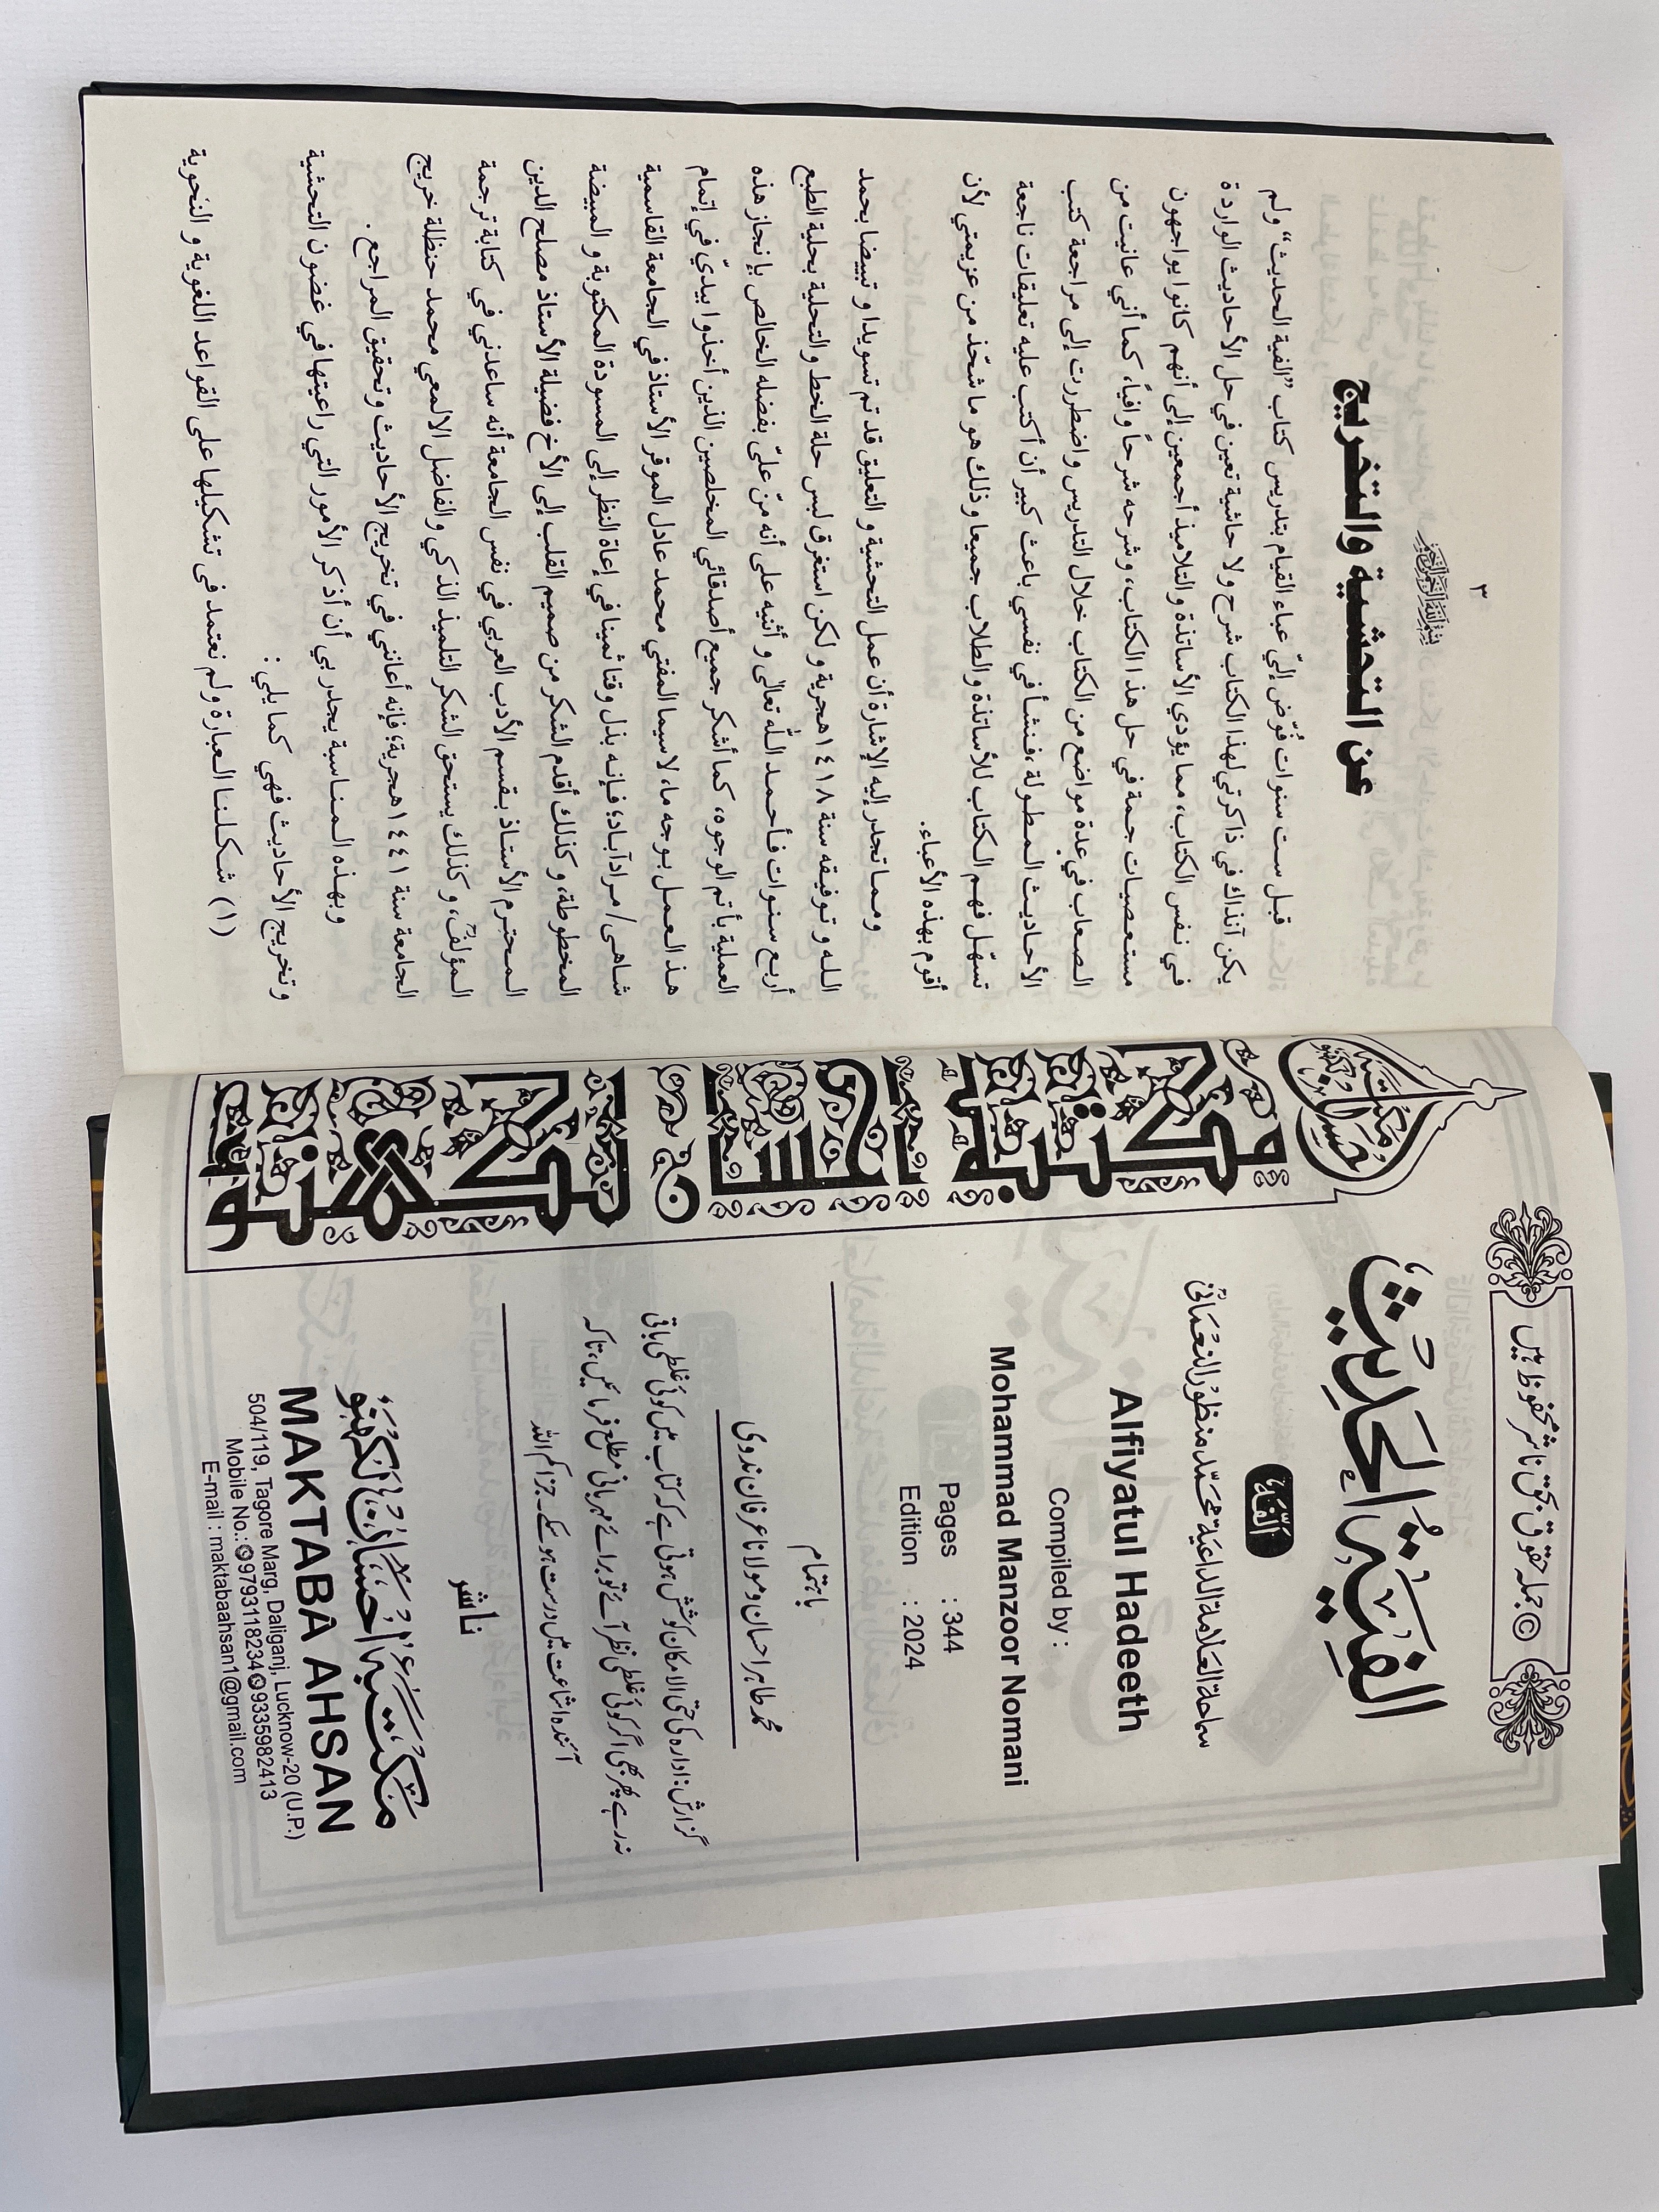 © جملہ حقوق بحق ناشر محفوظ ہیں
الفية الحديث
ألفية
سماحة العلامة الداعية محمد منظور النعماني
Alfiyatul Hadeeth
Compiled by :
Mohammad Manzoor Nomani
Pages : 344
Edition : 2024
باہتمام
محمد طاہر احسان و مولانا عرفان ندوی
گزارش: ادارہ کی حتی الامکان کوشش ہوتی ہے کہ کتاب میں کوئی غلطی باقی
نہ رہے پھر بھی اگر کوئی غلطی نظر آئے تو برائے مہربانی مطلع فرمائیں، تاکہ
آئندہ اشاعت میں درست ہو سکے۔ جزاکم اللہ
ناشر
مکتبہ احسان لکھنؤ
MAKTABA AHSAN
504/119, Tagore Marg, Daliganj, Lucknow-20 (U.P.)
Mobile No.: 9793118234 9335982413
E-mail : maktabaahsan1@gmail.com
مکتبہ احسان لکھنؤ
مکتبہ احسان لکھنؤ
٣
بسم الله الرحمن الرحيم
عن التحشية والتخريج
قبل ست سنوات فُوّض إليّ عباء القيام بتدريس كتاب ”الفية الحديث“ ولم
يكن آنذاك في ذاكرتي لهذا الكتاب شرح ولا حاشية تعين في حل الأحاديث الواردة
في نفس الكتاب، مما يؤدي الأساتذة والتلاميذ أجمعين إلى أنهم كانوا يواجهون
مستعصيات جمة في حل هذا الكتاب، وشرحه شرحاً وافياً، كما أني عانيت من
الصعاب في عدة مواضع من الكتاب خلال التدريس واضطررت إلى مراجعة كتب
الأحاديث المطولة، فنشأ في نفسي باعث كبير أن أكتب عليه تعليقات ناجعة
تسهّل فهم الكتاب للأساتذة والطلاب جميعا وذلك هو ما شحّذ من عزيمتي لأن
أقوم بهذه الأعباء.
ومما تجدر إليه الإشارة أن عمل التحشية و التعليق قد تم تسويدا و تبييضا بحمد
الله و توفيقه سنة ١٤١٨ هجرية و لكن استغرق لبس حلة الخط و التحلية بحلية الطبع
أربع سنوات فأحمد الله تعالى و أثنيه على أنه منّ عليّ بفضله الخالص بإنجاز هذه
العملية بأتم الوجوه، كما أشكر جميع أصدقائي المخلصين الذين أخذوا بيديّ في إتمام
هذا العمل بوجه ما، لاسيما المفتي محمد عادل الموقر الأستاذ في الجامعة القاسمية
شاهی/ مرادآباد؛ فإنه بذل وقتا ثمينا في إعاة النظر إلى المسودة المكتوبة و المبيضة
المخطوطة، و كذلك أقدم الشكر من صميم القلب إلى الأخ فضيلة الأستاذ مصلح الدين
المحترم الأستاذ بقسم الأدب العربي في نفس الجامعة أنه ساعدني في كتابة ترجمة
المؤلفؒ، و كذلك يستحق الشكر التلميذ الذكي والفاضل الالمعي محمد حنظلة خريج
الجامعة سنة ١٤٤١ هجرية؛ فإنه أعانني في تخريج الأحاديث و تحقيق المراجع.
وبهذه المناسبة يجدر بي أن أذكر الأمور التي راعيتها في غضون التحشية
و تخريج الأحاديث فهي كما يلي:
(١) شكلنا العبارة ولم نعتمد في تشكيلها على القواعد اللغوية و النحوية